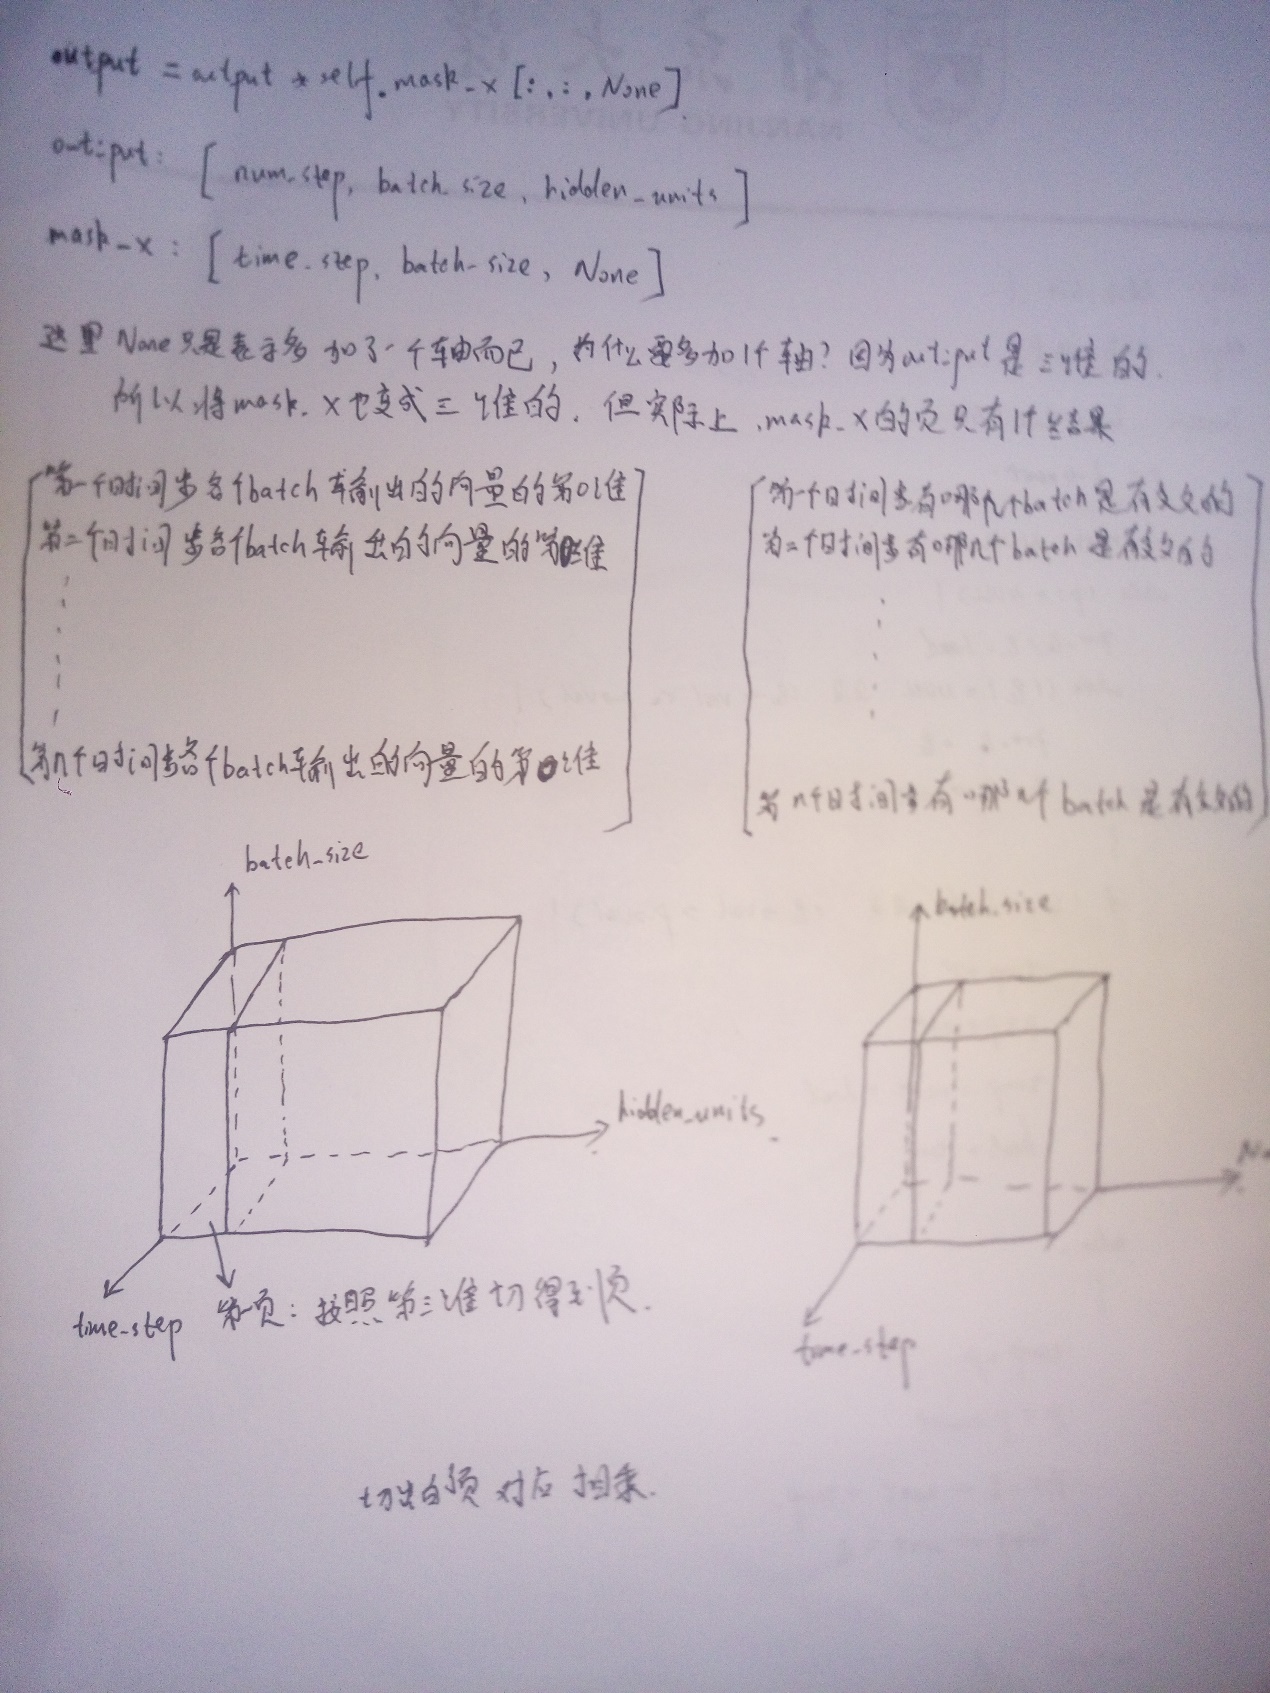 output = output * self.mask_x [:,:,None]
output: [ num_step, batch_size, hidden_units ]
mask_x: [ time_step, batch_size, None ]
这里None只是表示多加了一个轴而已，为什么要多加1个轴？因为output是三维的.
所以将mask_x也变成三维的. 但实际上，mask_x的页只有1个结果
第一个时间步各个batch 输出的向量的第0维
第二个时间步各个batch 输出的向量的第0维
第n个时间步各个batch 输出的向量的第0维
第一个时间步有哪几个batch是有意义的
第二个时间步有哪几个batch是有意义的
第n个时间步有哪几个batch是有意义的
batch_size
hidden_units
time_step
第一页：按照第三维切得到页.
batch_size
time_step
切出的页对应相乘.
NANJING UNIVERSITY